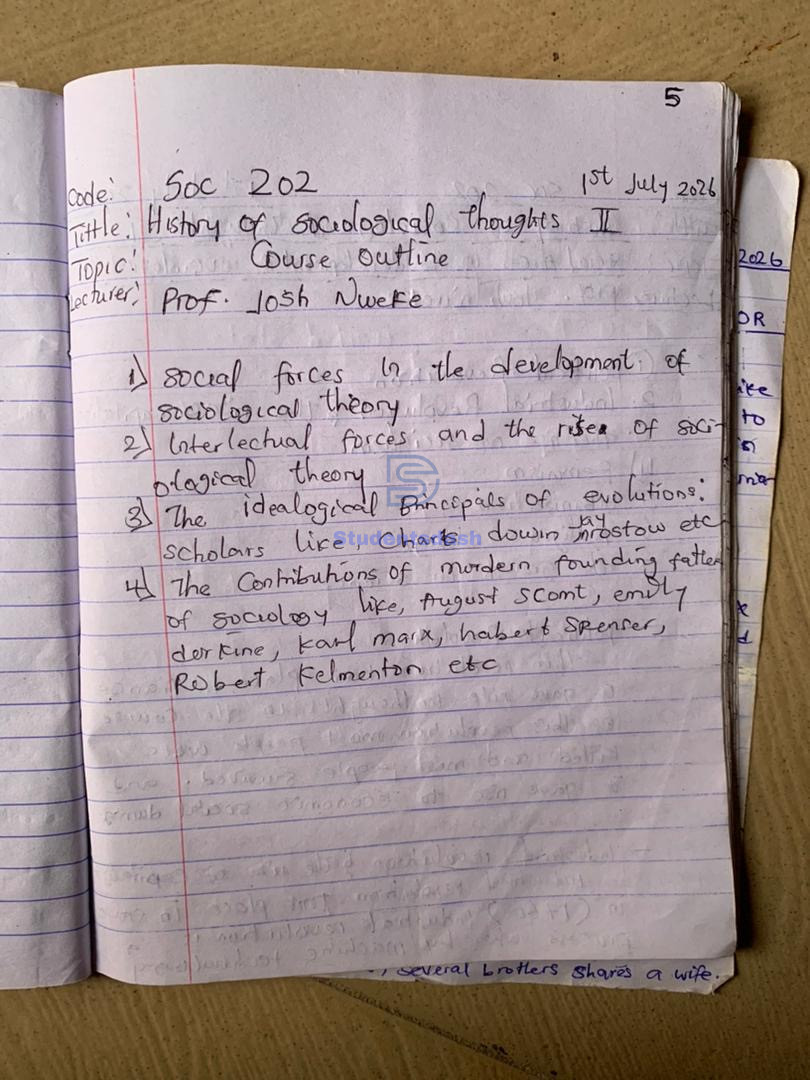 5
Code: Soc 202 1st July 2026
Tittle: History of sociological thoughts II
Topic: Course outline
Lecturer: Prof. Josh Nweke
1) social forces in the development of
sociological theory
2) Interlectual forces and the rise of soci-
ological theory
3) The idealogical Principals of evolutions:
scholars like, Charls dowin etc
4) The Contributions of mordern founding father
of sociology like, August scomt, emily
derkine, karl marx, habert spenser,
Robert kelmenton etc
2026
OR
to
several brothers shares a wife.